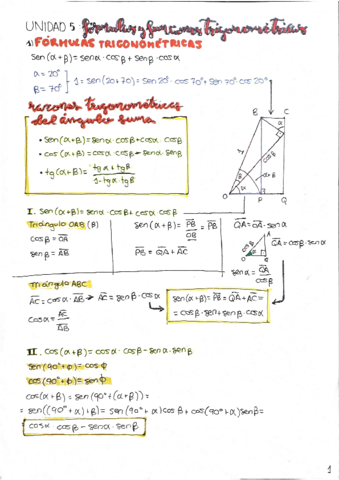 UNIDAD 5: fórmulas y funciones trigonométricas
1) FÓRMULAS TRIGONOMÉTRICAS
sen(α+β)=senα·cosβ+senβ·cosα
α=20°
β=70°
1=sen(20+70)=sen20°·cos70°+sen70°·cos20°
razones trigonométricas
del ángulo suma
• sen(α+β)=senα·cosβ+cosα·cosβ
• cos(α+β)=cosα·cosβ-senα·senβ
• tg(α+β)= tgα+tgβ / 1-tgα·tgβ
B C
α
1
cosβ
β
α
α+β
A
O P Q
I. sen(α+β)=senα·cosβ+cosα·cosβ
Triángulo OAB (B)
cosβ=OA
senβ=AB
sen(α+β)= PB / OB = PB
PB=QA+AC
QA=OA·senα
A
cosβ
O Q
QA=cosβ·senα
senα= QA / cosβ
Triángulo ABC
AC=cosα·AB → AC=senβ·cosα
cosα= AC / AB
sen(α+β)=PB=QA+AC=
=cosβ·sen+senβ·cosα
II. cos(α+β)=cosα·cosβ-senα·senβ
sen(90°+ϕ)=cosϕ
cos(90°+ϕ)=senϕ
cos(α+β)=sen(90°+(α+β))=
=sen((90°+α)+β)=sen(90°+α)cosβ+cos(90°+α)senβ=
cosα·cosβ-senα·senβ
1